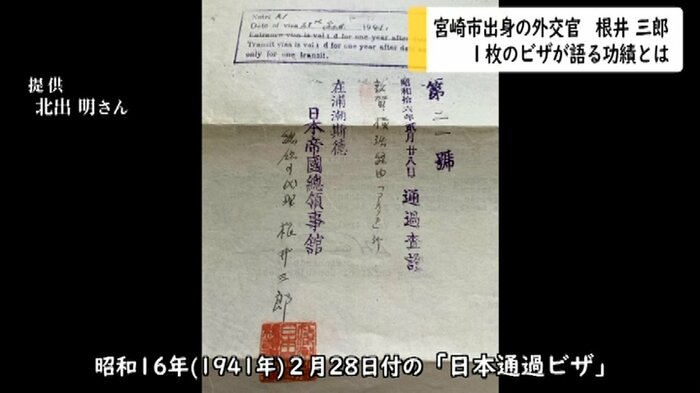 宮崎市出身の外交官 根井 三郎
1枚のビザが語る功績とは
提供
北出 明さん
Date of visa
Entrance visa is valid for one year after date
Transit visa is valid for one year after date
only for one transit.
第二一號
昭和拾六年貳月廿八日 通過査證
敦賀、横濱經由
在浦潮斯德
日本帝國總領事館
根井三郎
昭和16年(1941年)2月28日付の「日本通過ビザ」